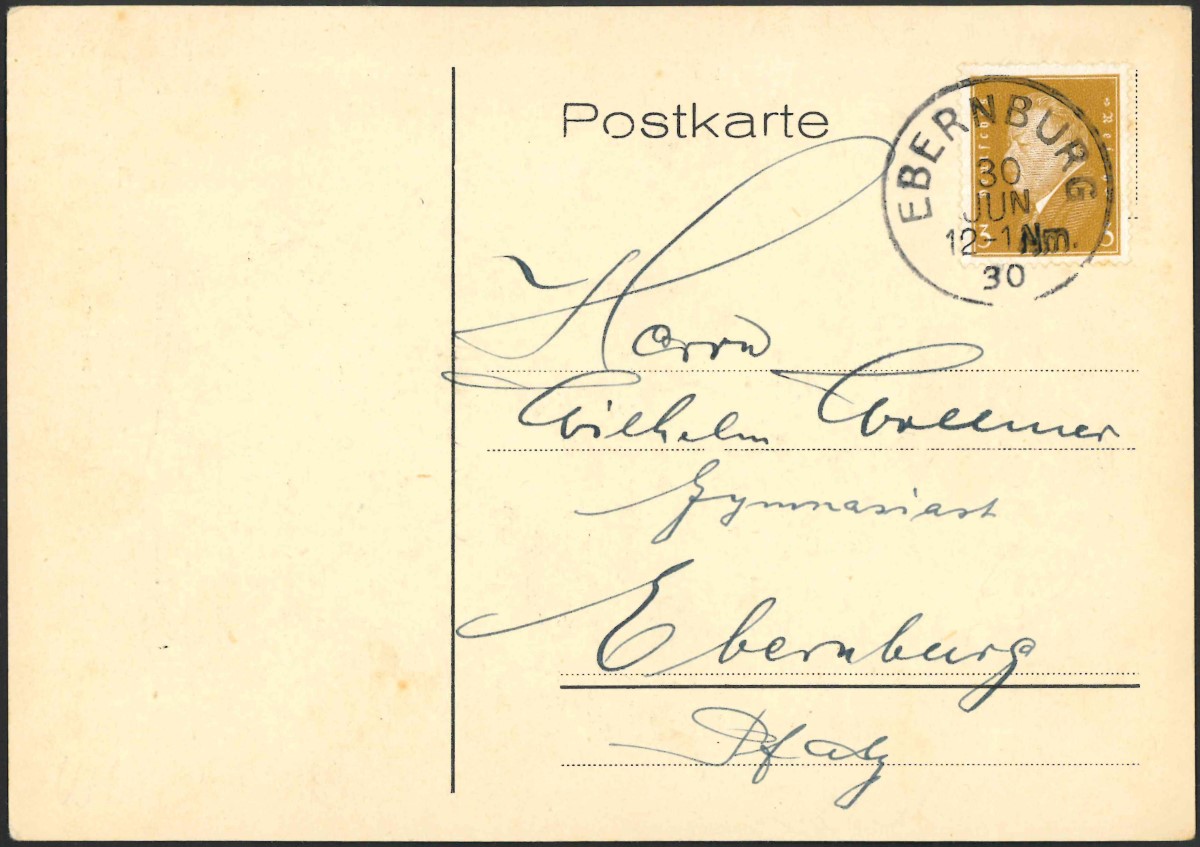 Postkarte
EBERNBURG
30
JUN
12-1 Nm.
30
3 3
Herrn
Wilhelm Wollmer
Gymnasiast
Ebernburg
Pfalz